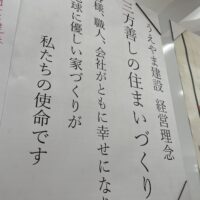 うえやま建設 経営理念
三方善しの住まいづくり
様、職人、会社がともに幸せになり
球に優しい家づくりが
私たちの使命です